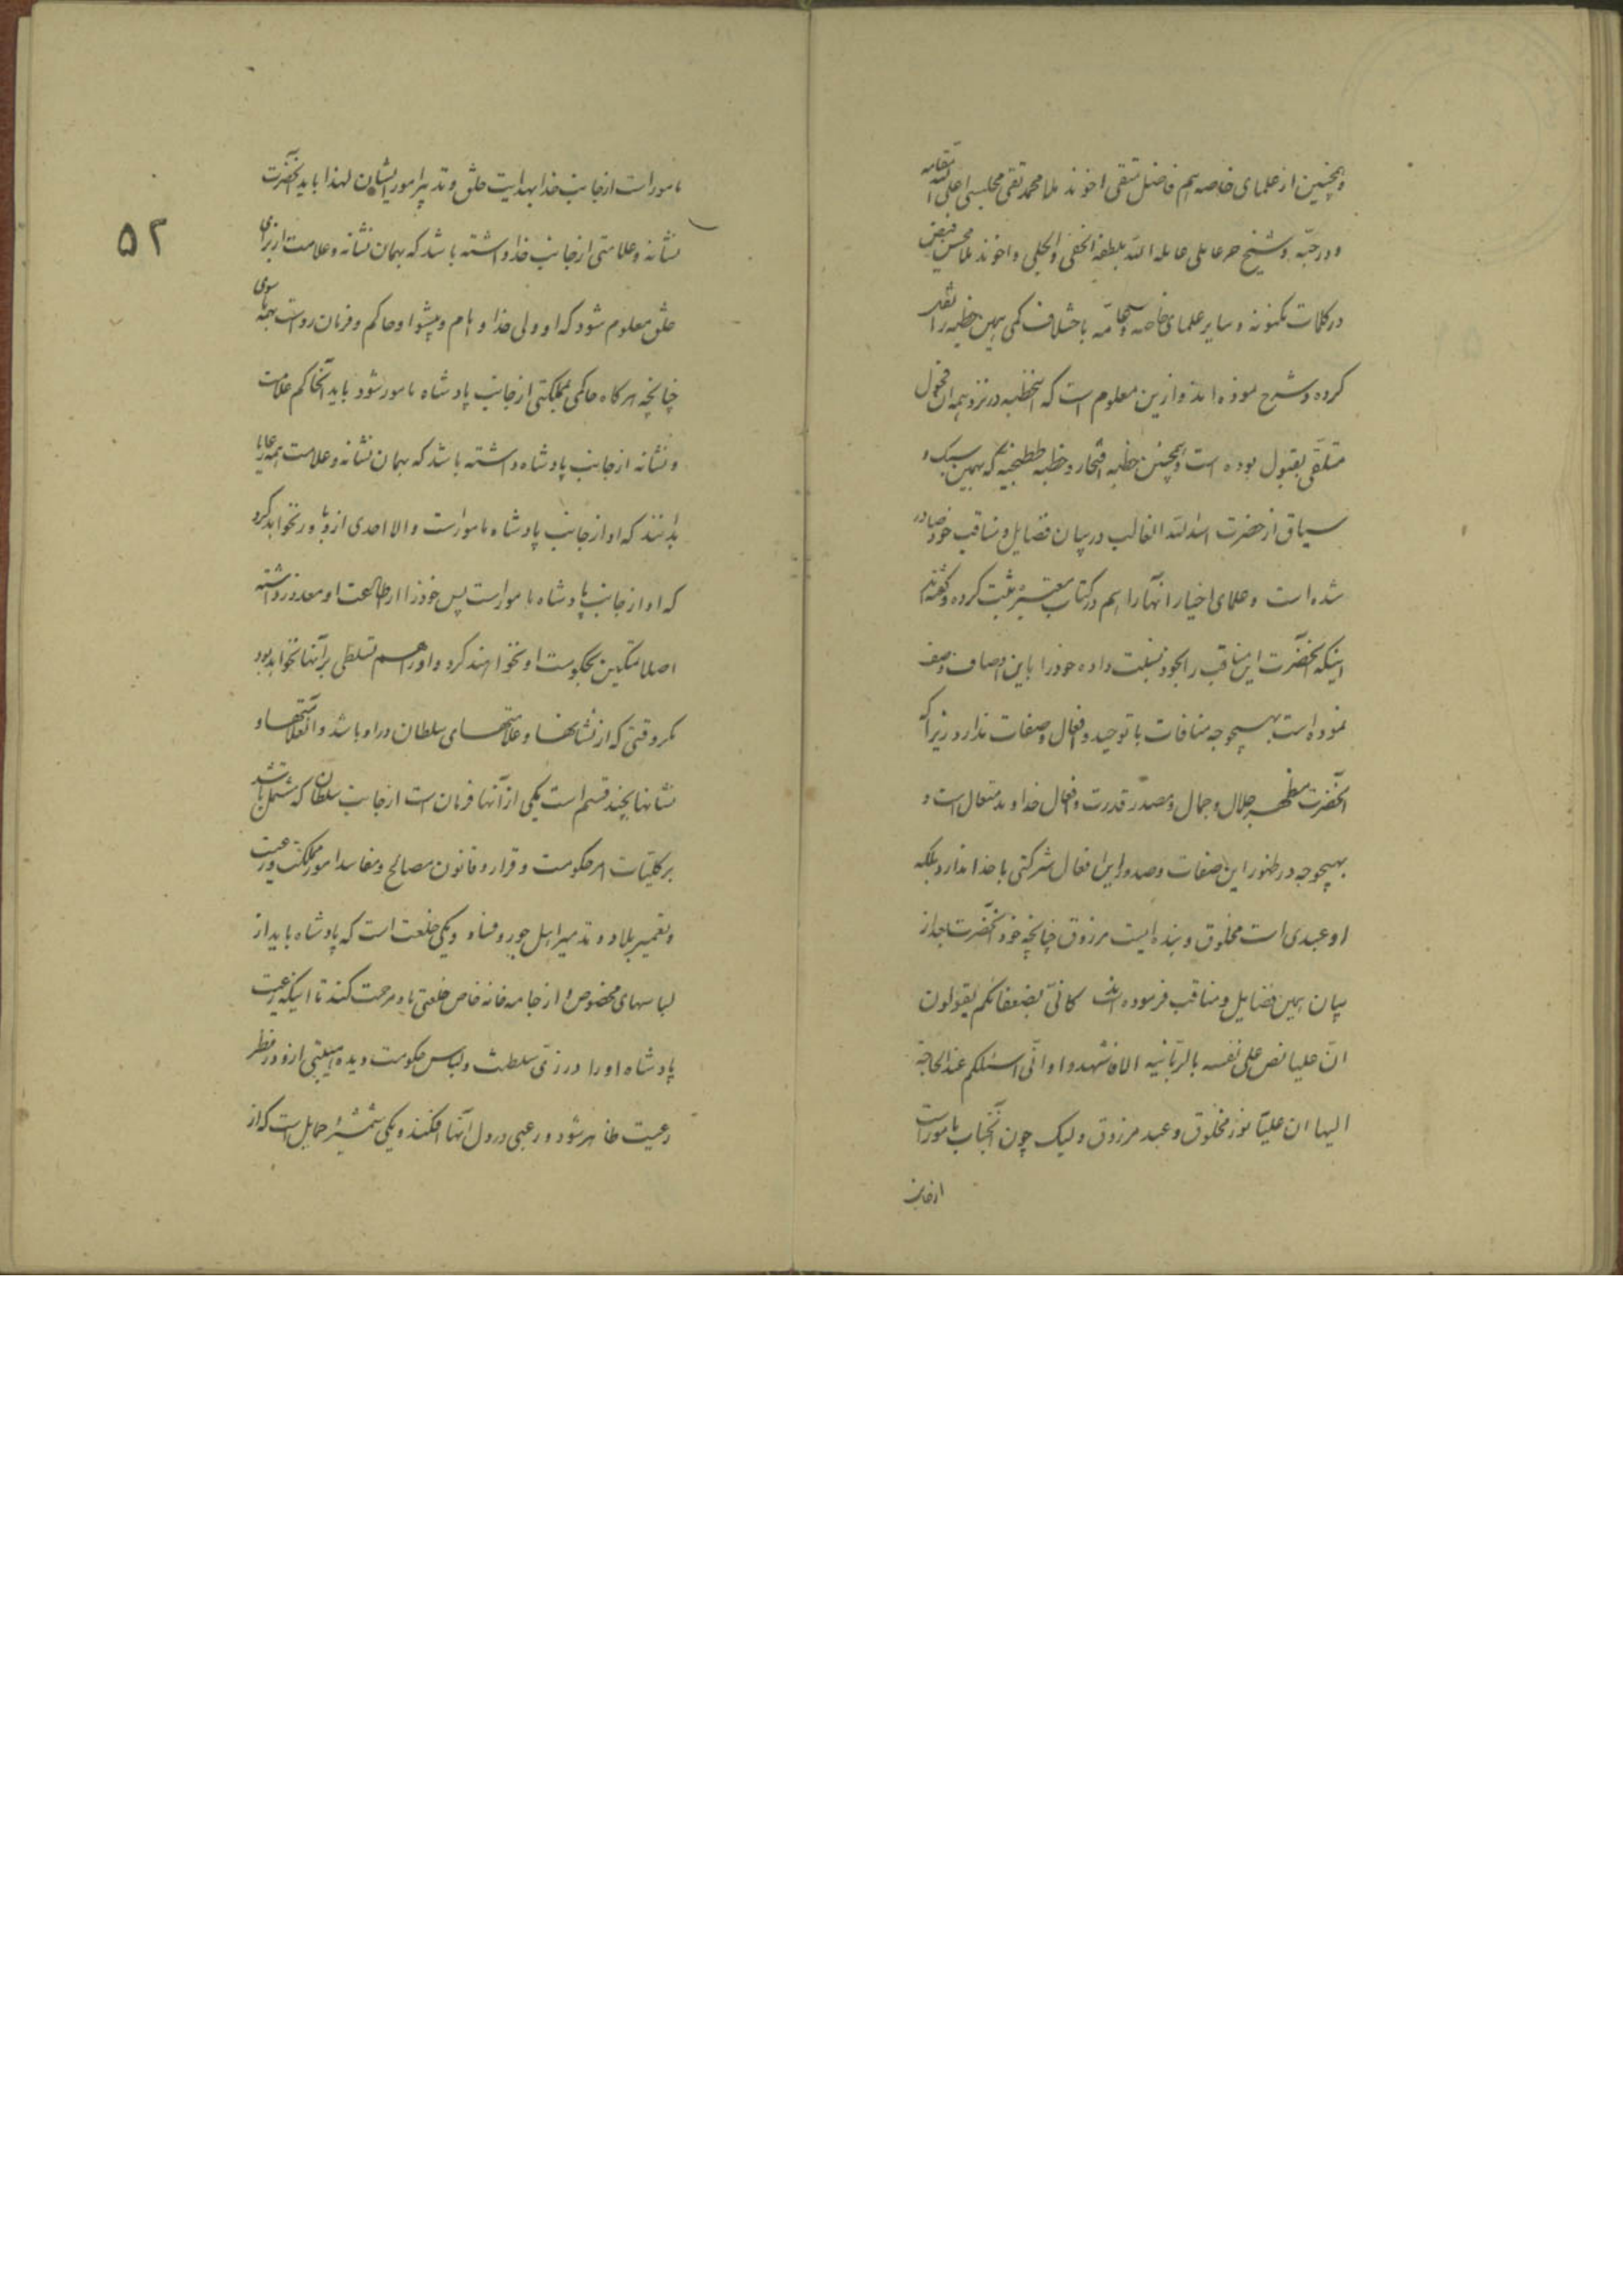 وهمچنین از علمای خاصه هم فاضل متقی اخوند ملا محمد تقی مجلسی اعلی الله مقامه
ودرجته وشیخ حر عاملی عامله الله بلطفه الخفی والجلی واخوند ملا محسن فیض
در کلمات مکنونه وسایر علمای خاصه وعامه باختلاف کمی همین خطبه را نقل
کرده وشرح نموده اند وازین معلوم است که اینخطبه در نزد همه ان فحول
متلقی بقبول بوده است وهمچنین خطبه افتخار وخطبه طتنجیه که بهمین سبک و
سیاق از حضرت اسد الله الغالب در بیان فضایل ومناقب خود صادر
شده است وعلمای اخیار انها را هم در کتاب معتبره ثبت کرده وگفته اند
اینکه انحضرت این مناقب را بخود نسبت داده خود را باین اوصاف وصف
نموده است بهیچوجه منافات با توحید وافعال وصفات ندارد زیرا که
آنحضرت مظهر جلال وجمال ومصدر قدرت وافعال خداوند متعال است و
بهیچوجه در ظهور این صفات وصدور این افعال شرکتی با خدا ندارد بلکه
او عبدی است مخلوق وبنده ایست مرزوق چنانچه خود آنحضرت بعد از
بیان همین فضایل ومناقب فرموده اند کانی بضعفائکم یقولون
ان علیا نص علی نفسه بالربانیه الا فاشهدوا وانی اسئلکم عند الحاجة
الیها ان علیا نور مخلوق وعبد مرزوق ولیک چون آنجناب مامور است
از جانب
مامور است از جانب خدا بهدایت خلق وتدبیر امور ایشان لهذا باید آنحضرت
نشانه وعلامتی از جانب خدا داشته باشد که بهمان نشانه وعلامت از برای
خلق معلوم شود که او ولی خدا و امام وپیشوا وحاکم وفرمان رواست بهمه ما سوی
چنانچه هر کاه حاکمی بمملکتی از جانب پادشاه مامور شود باید آنحاکم علامت
ونشانه از جانب پادشاه داشته باشد که بهمان نشانه وعلامت همه رعایا
بدانند که او از جانب پادشاه مامور است والا احدی از او باور نخواهد کرد
که او از جانب پادشاه مامور است پس خود را از اطاعت او معذور داشته
اصلا تمکین بحکومت او نخواهند کرد واو را هم تسلطی بر آنها نخواهد بود
مگر وقتی که از نشانها وعلامتهای سلطان در او باشد وآنعلامتها و
نشانها بچند قسم است یکی از آنها فرمان است از جانب سلطان که مشتمل باشد
بر کلیات امر حکومت وقرار وقانون مصالح ومفاسد امور مملکت ورعیت
وتعمیر بلاد وتدمیر اهل جور وفساد ویکی خلعت است که پادشاه باید از
لباسهای مخصوص و از جامه خانه خاص خلعتی باو مرحمت کند تا اینکه رعیت
پادشاه او را در زی سلطنت ولباس حکومت دیده هیبتی ازو در نظر
رعیت ظاهر شود ورعبی در دل آنها افکند ویکی شمشیر حمایل است که از
۵۲